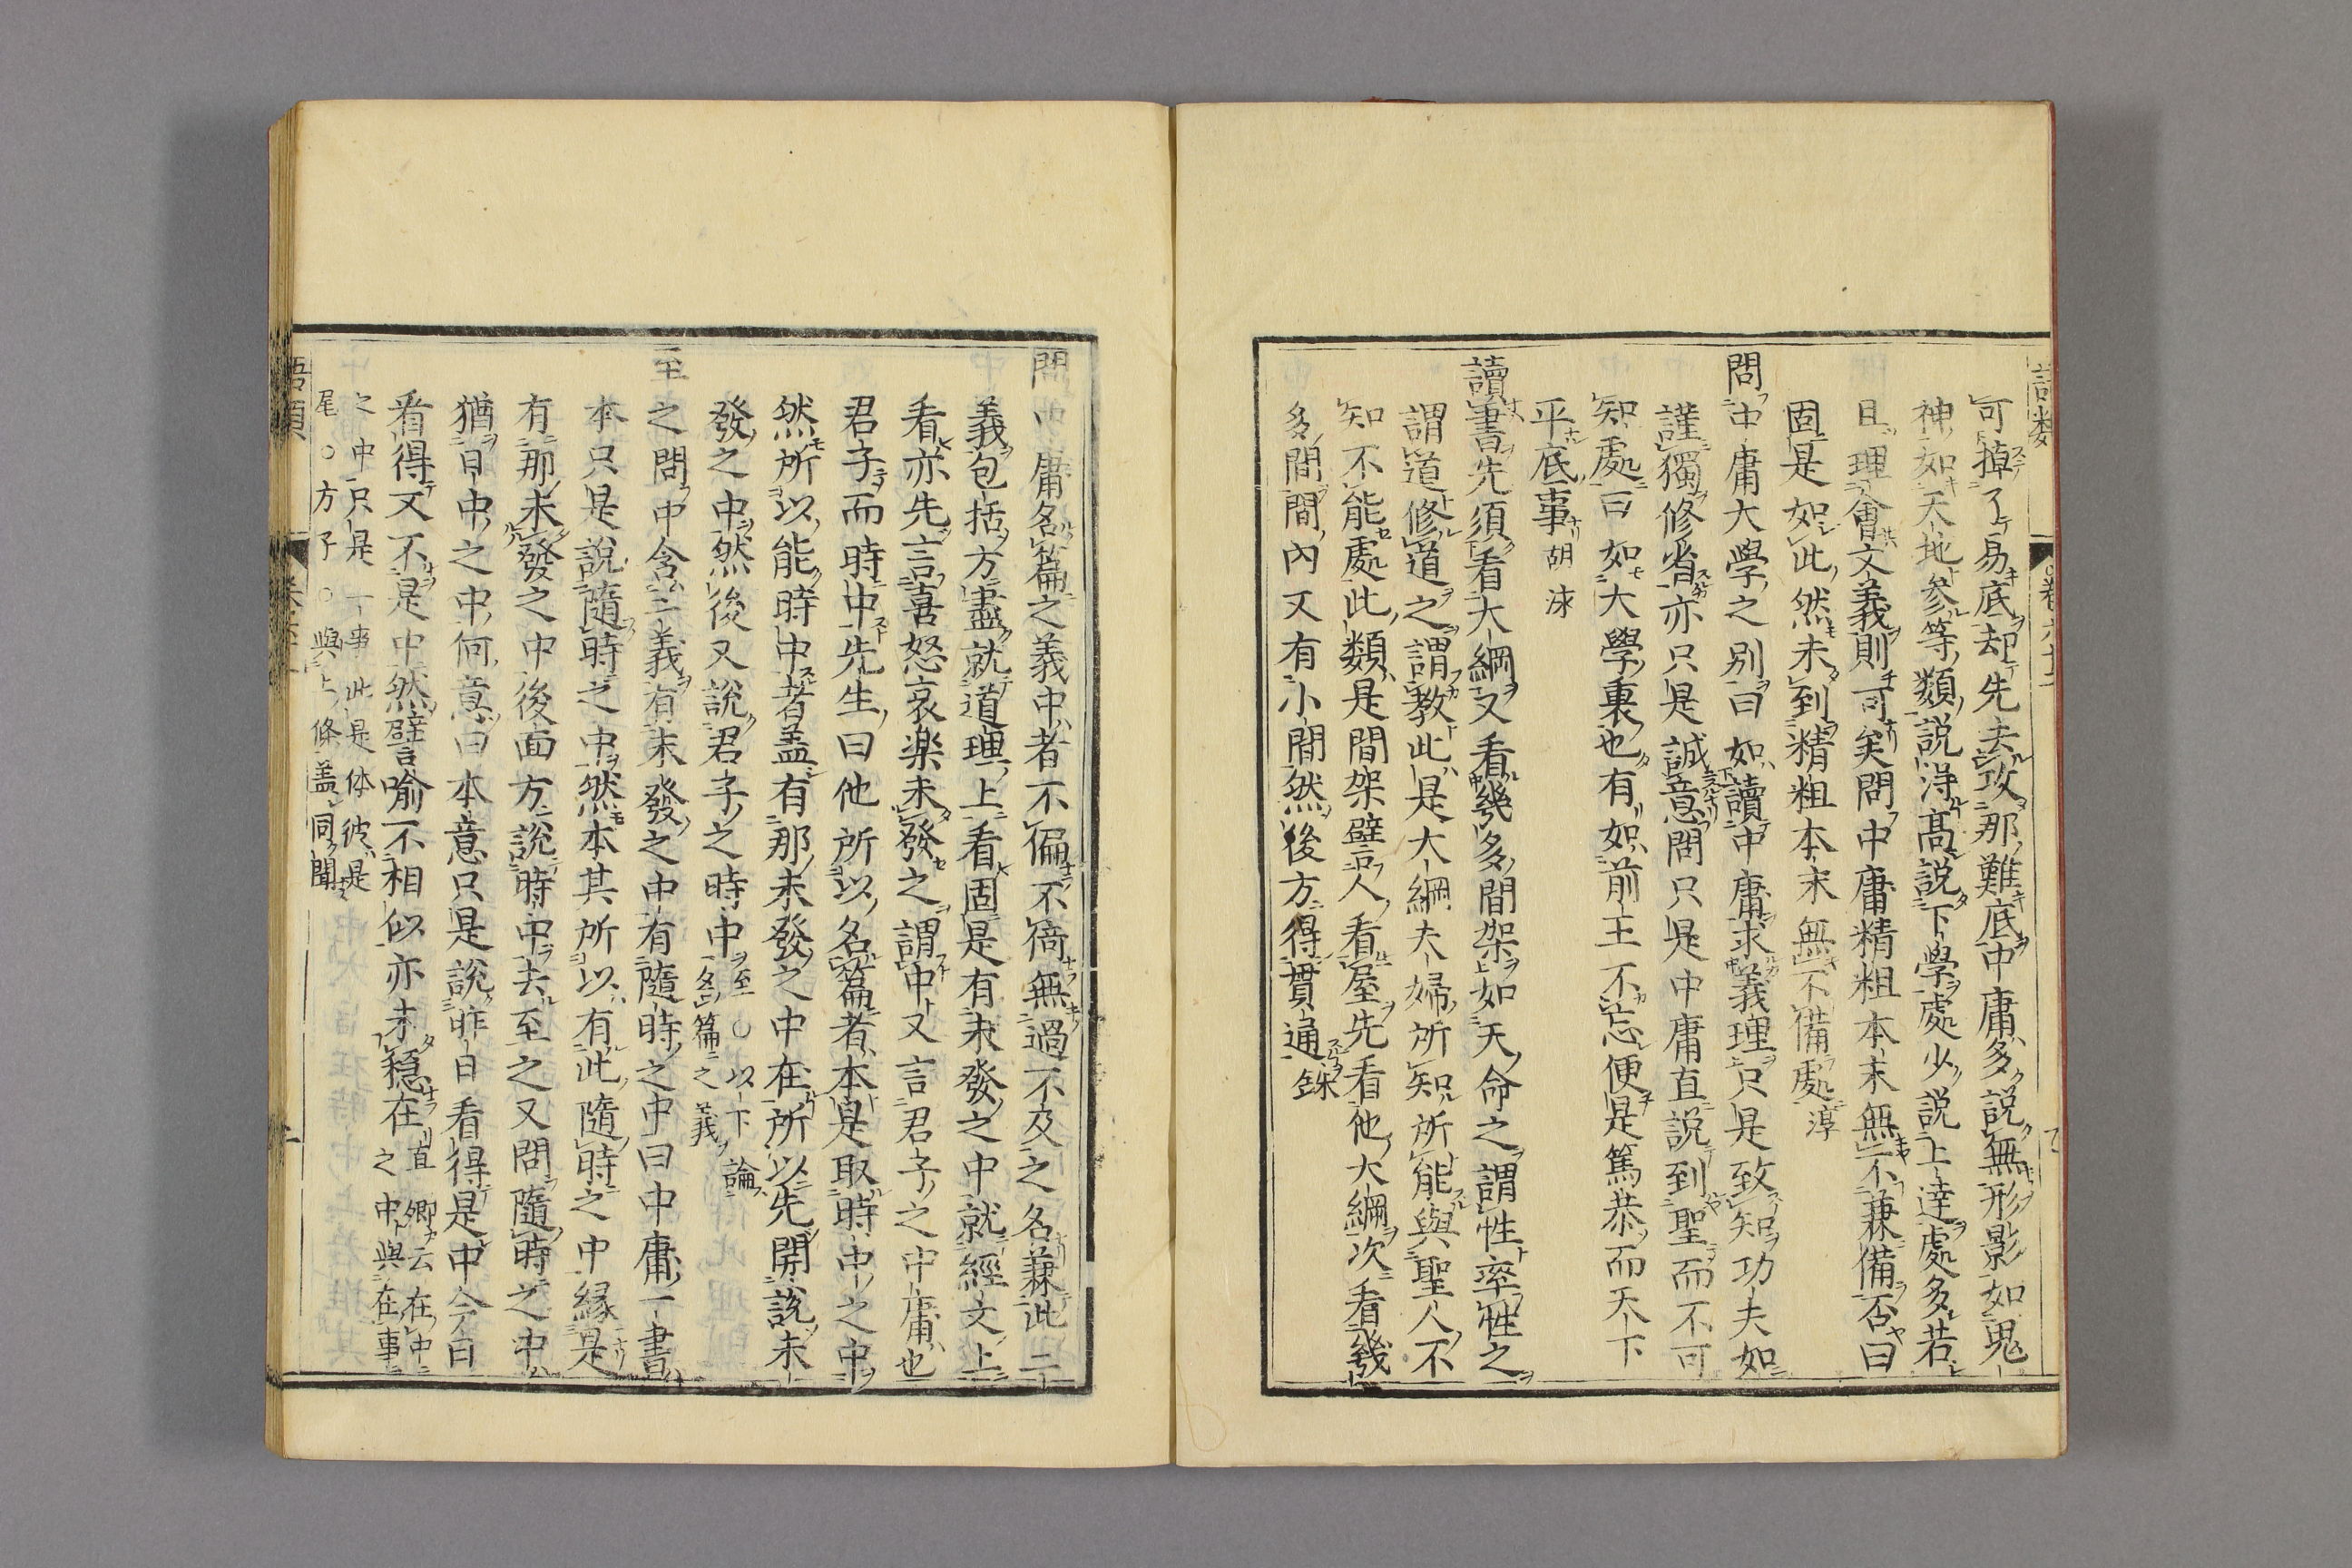 語類
可掉了易底却先去攻那難底中庸多說無形影如鬼
神如天地參等類說得髙說下學處少說上達處多若
且理會文義則可矣問中庸精粗本末無不兼備否曰
固是如此然未到精粗本末無不備處淳
問中庸大學之別曰如讀中庸求義理只是致知功夫如
謹獨修省亦只是誠意問只是中庸直説到聖而不可
知處曰如大學裏也有如前王不忘便是篤恭而天下
平底事胡泳
讀書先須看大綱又看幾多間架如天命之謂性率性之
謂道修道之謂教此是大綱夫婦所知所能與聖人不
知不能處此類是間架譬人看屋先看他大綱次看幾
多間間內又有小間然後方得貫通銖
問中庸名篇之義中者不偏不倚無過不及之名兼此二
義包括方盡就道理上看固是有未發之中就經文上
看亦先言喜怒哀樂未發之謂中又言君子之中庸也
君子而時中先生曰他所以名篇者本是取時中之中
然所以能時中者盖有那未發之中在所以先開說未
發之中然後又說君子之時中至○以下論名篇之義
至之問中含二義有未發之中有隨時之中曰中庸一書
本只是說隨時之中然本其所以有此隨時之中緣是
有那未發之中後面方說時中去至之又問隨時之中
猶日中之中何意曰本意只是說昨日看得是中今日
看得又不是中然譬喻不相似亦未穩在直卿云在中之中與在事
之中只是一事此是体彼是
尾○方子○與上條盖同聞
語類